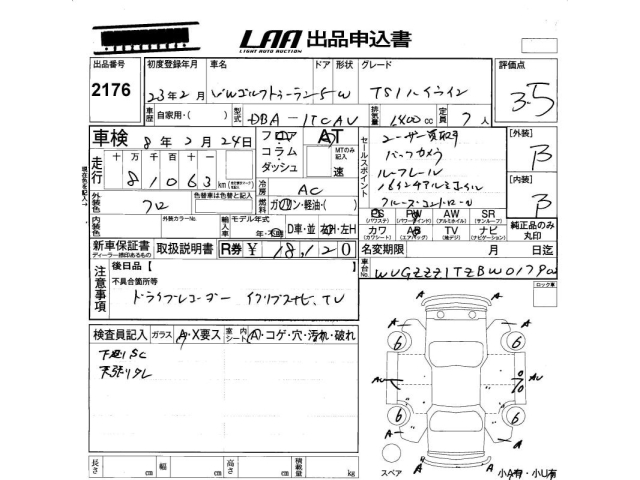 LAA 出品申込書
LIGHT AUTO AUCTION
出品番号 初度登録年月 車名 ドア 形状 グレード 評価点
2176 23年2月 VWゴルフトゥーラン 5 W TSIハイライン 3.5
車歴 自家用・( ) 型式 DBA-1TCAV 排気量 1400cc 定員 7人
車検 8年2月24日 フロア AT セールスポイント ユーザー買取 [外装]
コラム MTのみ記入 バックカメラ B
走行 十万千百十 ダッシュ 速 ルーフレール
81063 km 16インチアルミホイール [内装]
冷房 AC クルーズコントロール B
外装色 色替車は色替と記入 燃料 ガソリン・軽油・( )
クロ PS PW AW SR 純正品のみ丸印
(パワステ) (パワーウインド) (アルミホイル) (サンルーフ)
内装色 外装カラーNo. 輸入車 モデル年式 カワ AB TV ナビ
年・不明 D車・並 右H・左H (カワシート) (エアバッグ) (純デジ) (ナビゲーション)
新車保証書 取扱説明書 R券 ¥18,120 名変期限 月 日迄
ディーラー捺印あるもの
注意事項 後日品【 】 車台No. WVGZZZ1TZBW0179
不具合箇所等 ロック車
ドライブレコーダー
検査員記入 ガラス A・X要ス 室内シート A・コゲ・穴・汚れ・破れ
下廻りSC
A A
6 6
AU AU
6 6
A A
A
長さ cm 幅 cm 高さ cm 積載量 kg スペア 小A有・小U有